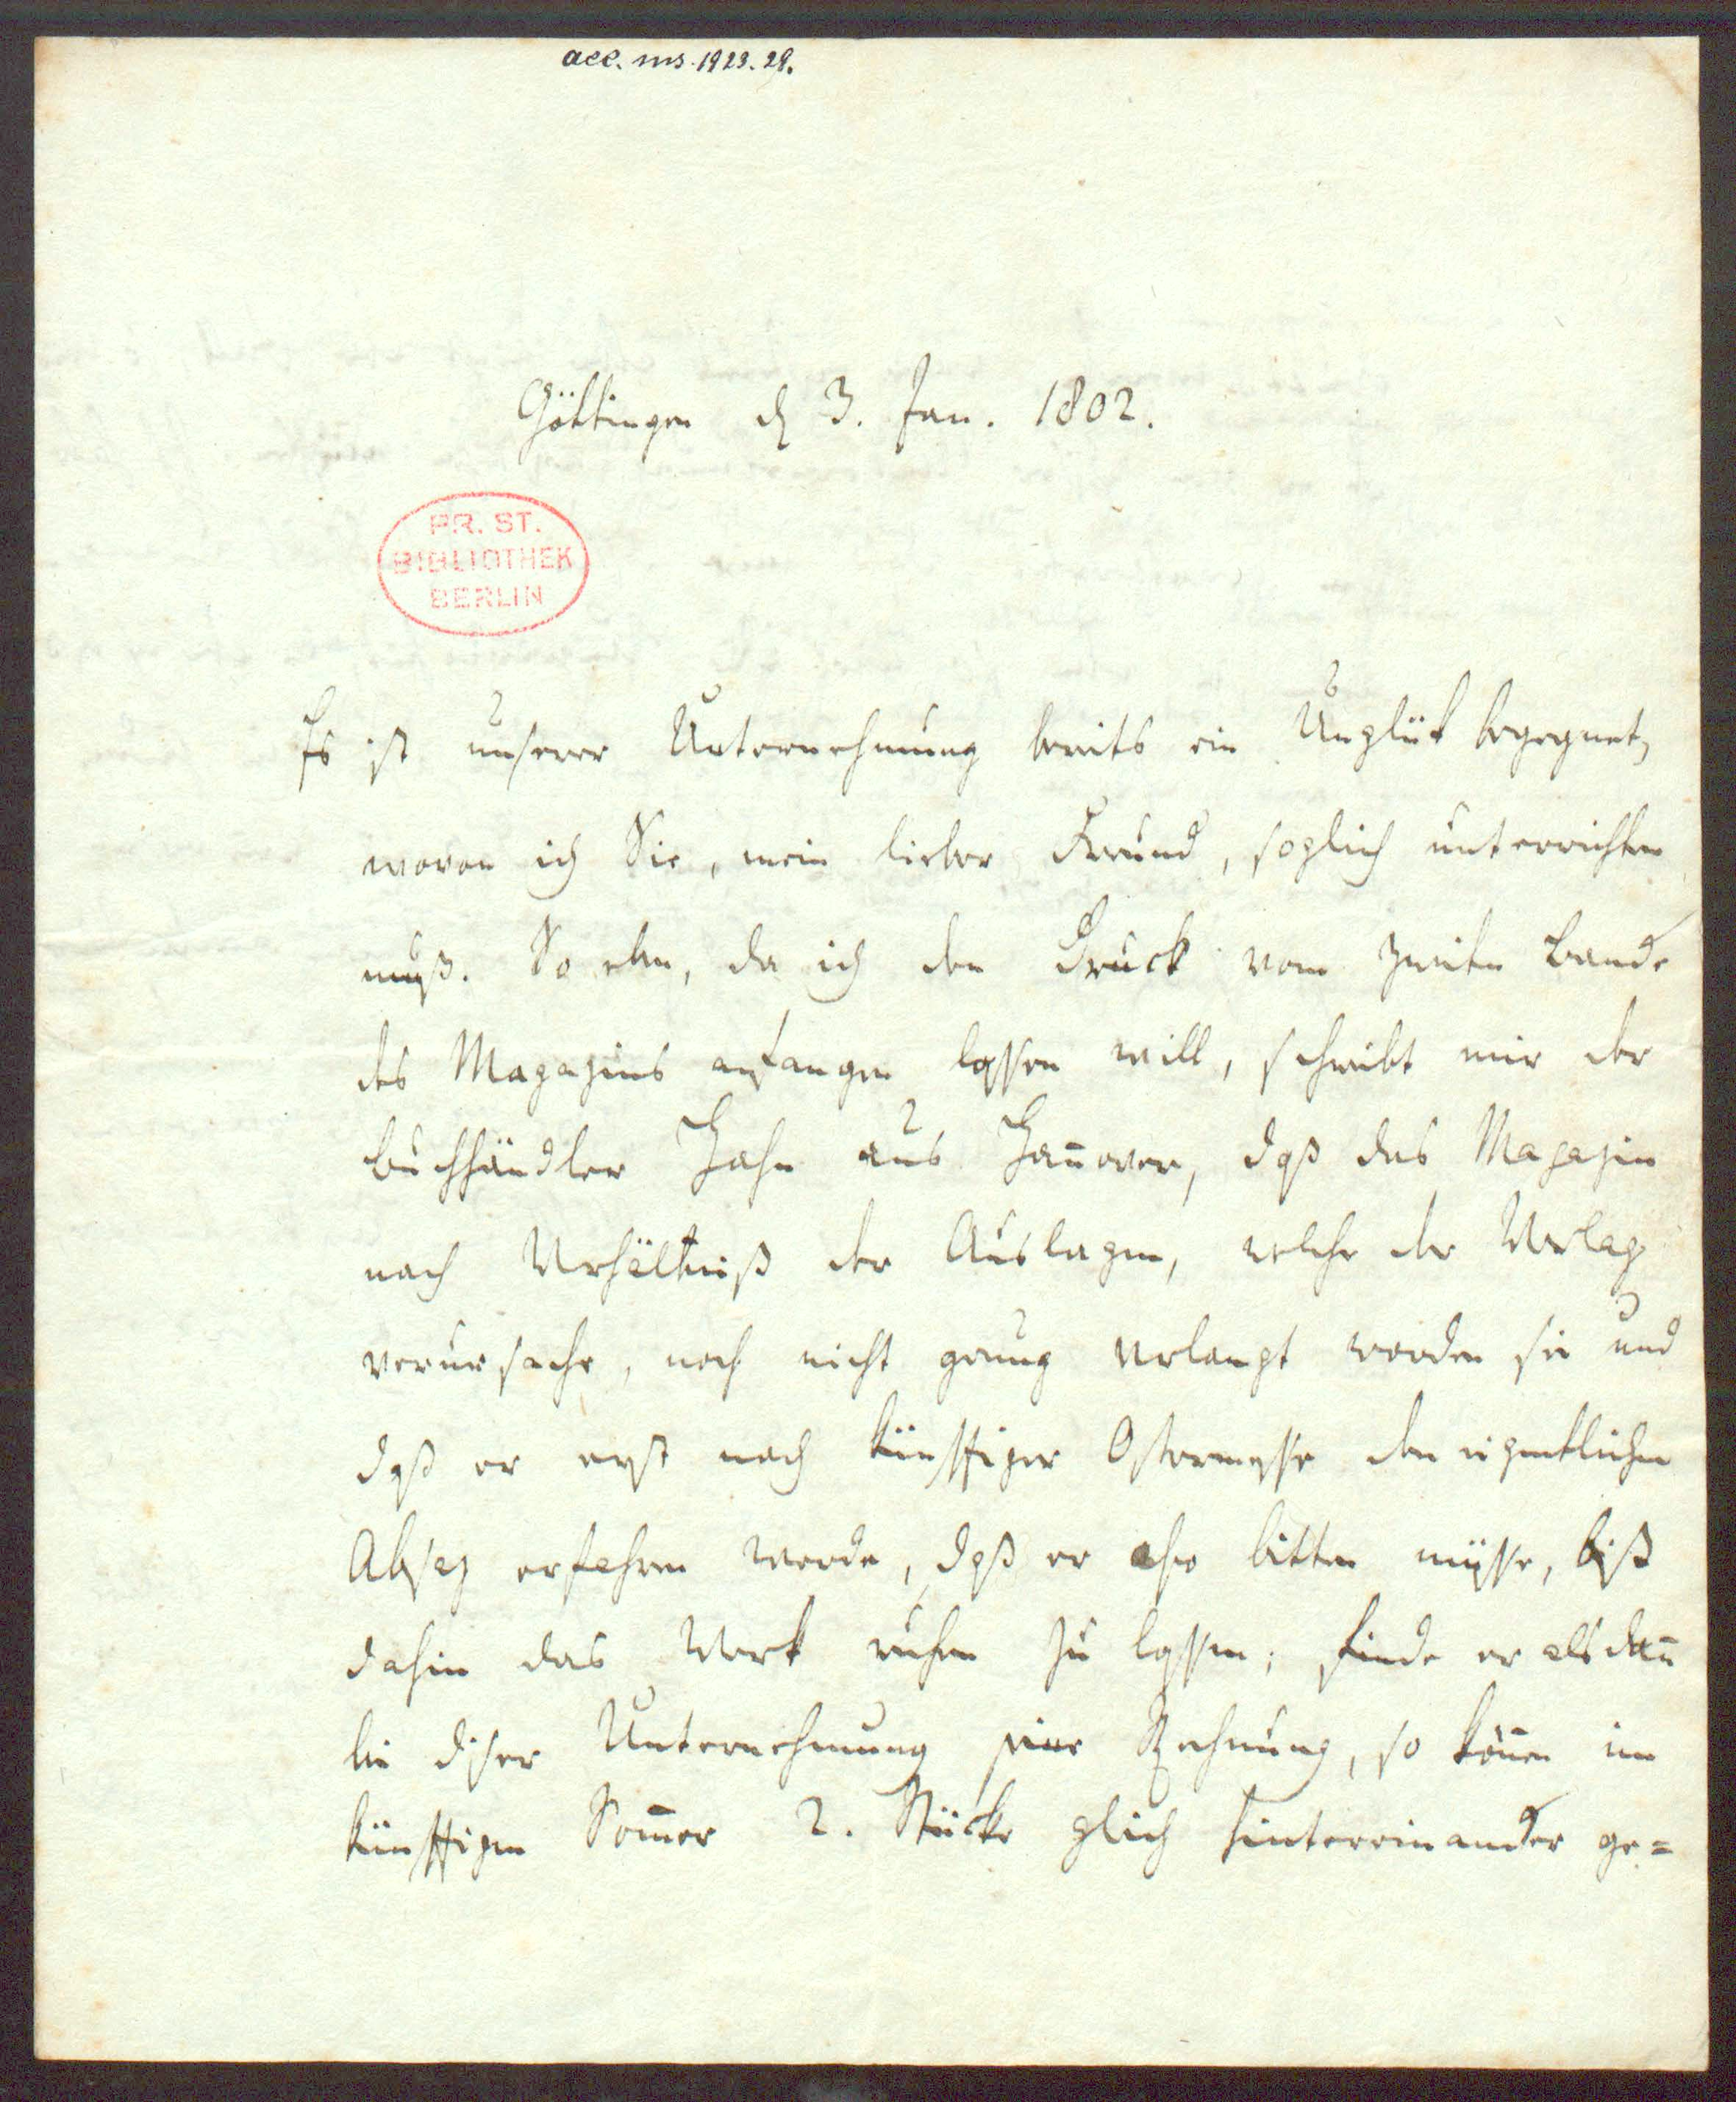 acc. ms. 1923. 29.
Göttingen d 3. Jan. 1802.
PR. ST.
BIBLIOTHEK
BERLIN
Es ist unserer Unternehmung bereits ein Unglük begegnet,
wovon ich Sie, mein lieber Freund, sogleich unterrichten
muß. So eben, da ich den Druck vom zweiten Bande
des Magazins anfangen lassen will, schreibt mir der
Buchhändler Hahn aus Han̅over, daß das Magazin
nach Verhältniß der Auslagen, welche der Verlag
verursache, noch nicht genug verlangt worden sei und
daß er erst nach künftiger Ostermesse den eigentlichen
Absaz erfahren werde, daß er also bitten müsse, biß
dahin das Werk ruhen zu lassen; finde er alsdan̅
bei diser Unternehmung seine Rechnung, so kön̅en im
künftigen Som̅er 2. Stücke gleich hintereinander ge=